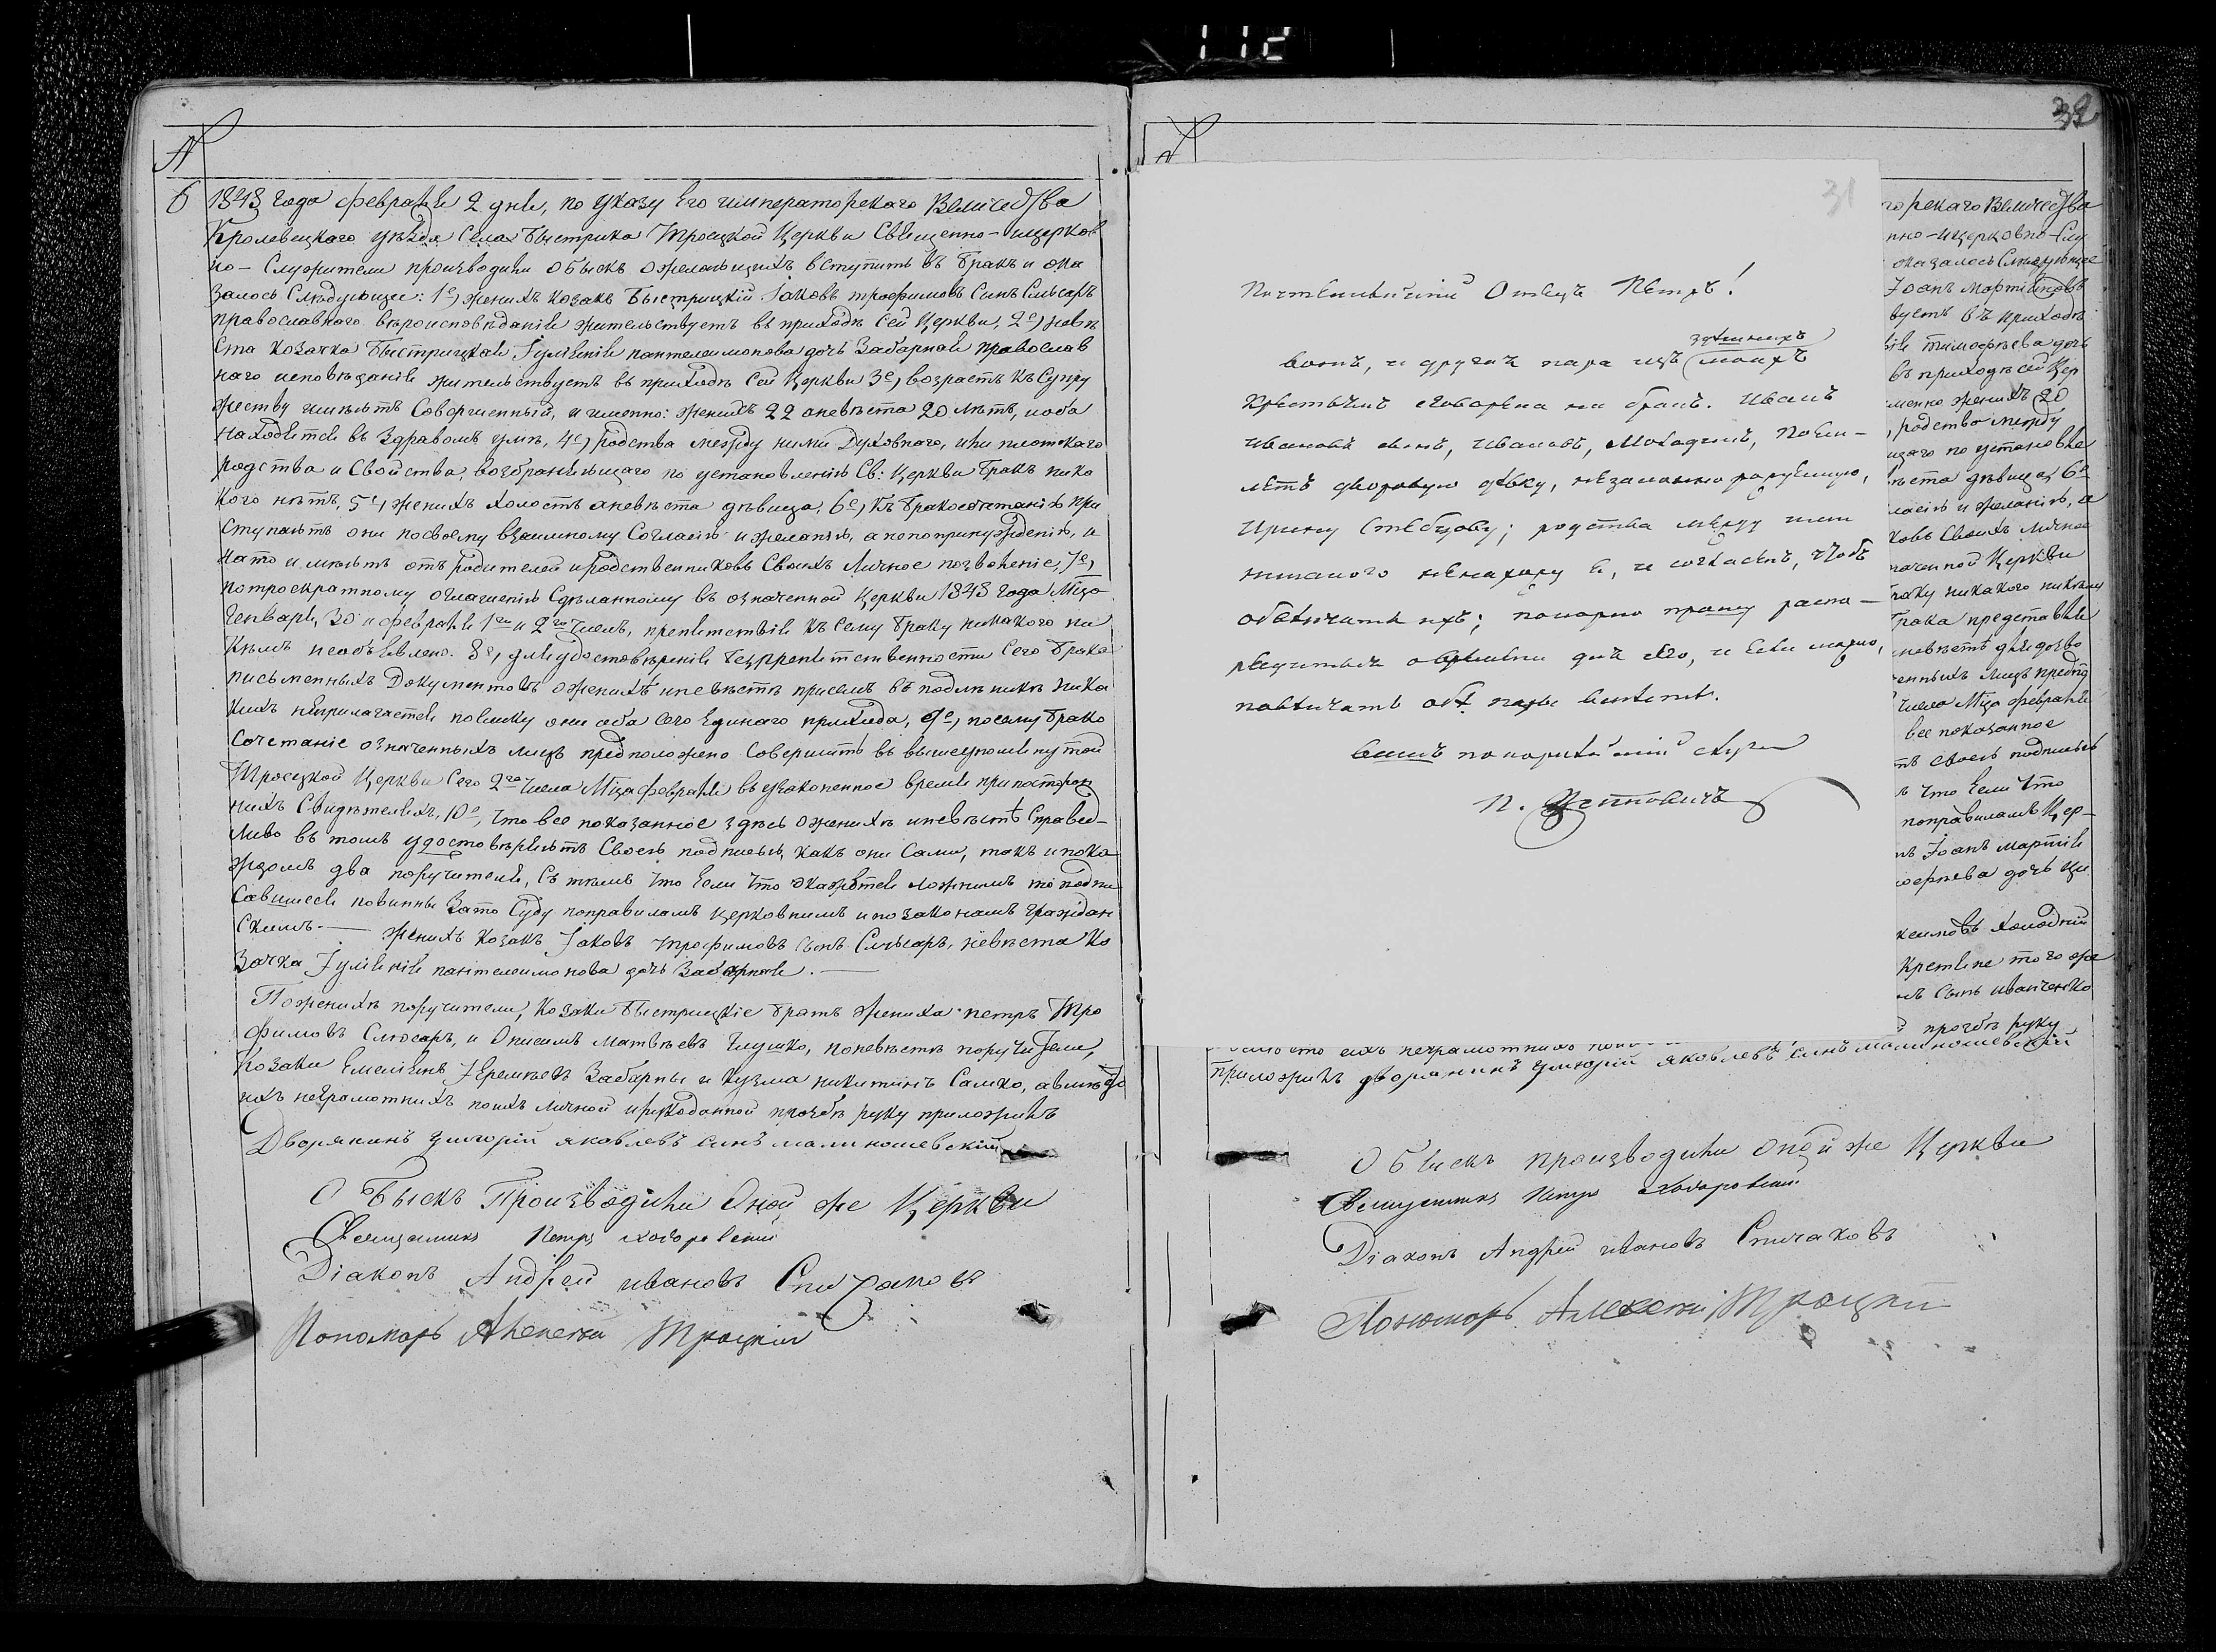 112
№
6
1843 года февраля 2 дня, по указу Его императорскаго Величества
Кролевецкаго уѣзда Села Быстрика Троецкой Церкви Священно-ицерков
но-Служители производили обыскъ ожелающихъ вступить въ бракъ и ока
залось Слѣдующее: 1е, женихъ козакъ Быстрицкій Іаковъ трофимовъ Синъ Слѣсаръ
православнаго вѣроисповѣданія жительствуетъ въ приходѣ Сей Церкви, 2е, невѣ
ста козачка Быстрицкая Іуліянія пантелеимонова дочь Забарная православ
наго исповѣданія жительствуетъ въ приходѣ Сей Церкви 3е, возрастъ къ Супру
жеству имѣютъ Совершенный, и именно: женихъ 22 аневѣста 20 лѣтъ, иоба
находятся въ здравомъ умѣ, 4е, родства между ними Духовнаго, или плотскаго
родства и Свойства, возбраняющаго по установленію Св: Церкви бракъ ника
кого нѣтъ, 5е, женихъ холостъ аневѣста дѣвица, 6е, къ бракосочетанію при
ступаютъ они посвоему взаимному Согласію и желанію, а непопринужденію, и
нато имѣютъ отъ родителей иродственниковъ Своихъ Личное позволеніе, 7е,
потроекратному оглашенію Сдѣланному въ означенной Церкви 1843 года Мѣца
Генваря 30 и февраля 1го и 2го чиселъ, препятствія къ сему браку никакого ни
кѣмъ необъявлено. 8е, для удостовѣренія безпрепятственности Сего брака
письменныхъ Документовъ оженихѣ иневѣстѣ присемъ въ подлинникѣ ника
кихъ неприлагается поелику они оба сего Единаго прихода, 9е, посему брако
Сочетаніе означенныхъ лицъ предположено Совершить въ вышеупомянутой
Троецкой Церкви Сего 2го числа Мѣца февраля въ узаконенное время припосторон
нихъ Свидѣтеляхъ, 10е, что все показанное здѣсь оженихѣ иневѣстѣ Справед-
ливо въ томъ удостовѣряютъ Своею подписью, какъ они Сами, такъ ипока
ждомъ два поручителя, Съ тѣмъ что Если что окажется ложнымъ то подпи
Савшиеся повинны зато Суду поправиламъ церковнымъ ипо законамъ Граждан
Скимъ. — Женихъ козакъ Іаковъ трофимовъ Синъ Слѣсаръ, невѣста Ко
зачка Іуліянія пантелеимонова дочь Забарная. —
Поженихѣ поручители, козаки Быстрицкіе братъ жениха петръ Тро
фимовъ Слюсаръ, и Онисимъ Матвѣевъ Глушко, поневѣстѣ поручители,
Козаки Емеліянъ Іеремѣевъ Забарны и Кузма никитинъ Сашко, авмѣсто
ихъ неграмотнихъ поихъ личной ирукоданной прозбѣ руку приложилъ
Дворянинъ Григорій яковлевъ синъ малиношевскій
Обыскъ Производили Оной же Церкви
Священникъ Петръ Ходоровскій
Діаконъ Андрей ивановъ Спичаковъ
Пономарь Алексей Троцкій
32
31
Почтеннѣйшій Отецъ Петръ!
здѣшнихъ
вотъ, и другая пара изъ моихъ
крестьянъ сговорена на бракъ. Иванъ
Ивановъ сынъ, Ивановъ,
дворовую дѣвку,
Ирину родства между ними
никакого ненахожу я, и согласенъ, чтобъ
обвѣнчать ихъ; покорно прошу распо-
и если можно,
повѣнчать обѣ пары вместѣ.
вашъ покорнѣйшій слуга
П.
торскаго Величества
нно-ицерковно-Слу
оказалось Слѣдующее
Іоанъ Мартиновъ
вуетъ въ приходѣ
тимофѣева дочь
въ приходѣ сей Цер
менно женихъ 20
, родство между
щаго по установле
ѣста дѣвица, 6е
ласію и желанію, а
ковъ Своихъ личное
наченной Церкви
раку никакого никѣмъ
брака представля
невѣстѣ для дозво
енныхъ лицъ предпо
числа Мѣца февраля
все показанное
тъ своею подписью
ъ что Если что
поправиламъ Цер-
ъ Іоанъ мартин
оѳеева дочь
Холодній
Крестяне того же
сынъ иванченко
прозбѣ руку
приложилъ дворянинъ Григорій яковлевъ синъ малиношевскій
Обыскъ производили оной же Церкви
Священникъ Петръ Ходоровскій
Діаконъ Андрей ивановъ Спичаковъ
Пономарь Алексей Троцкій